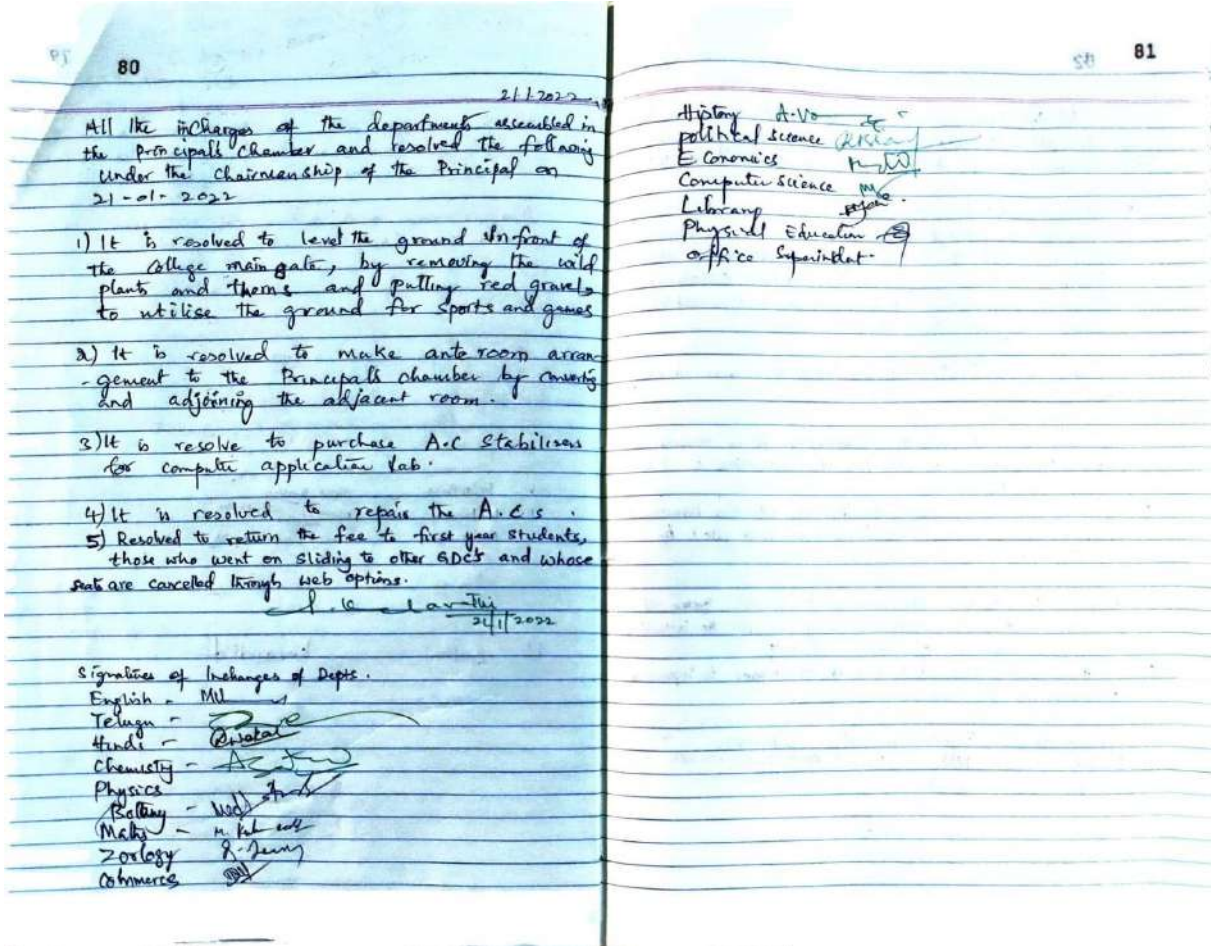 80
21-1-2022
All the incharges of the departments assembled in
the Principal's Chamber and resolved the following
under the Chairmanship of the Principal on
21-01-2022
1) It is resolved to level the ground infront of
the college main gate, by removing the wild
plants and thorns and putting red gravels
to utilise the ground for sports and games
2) It is resolved to make ante room arran-
-gement to the Principal's chamber by converting
and adjoining the adjacent room.
3) It is resolve to purchase A.C Stabilisers
for computer application lab.
4) It is resolved to repair the A.C s.
5) Resolved to return the fee to first year students,
those who went on sliding to other GDC's and whose
seats are cancelled through web options.
21/1/2022
Signatures of Incharges of Depts.
English -
Telugu -
Hindi -
Chemistry -
Physics
Bottany -
Maths -
Zoology
Commerce
81
History
political science
Economics
Computer Science
Library
Physical Education
office Superintdat.